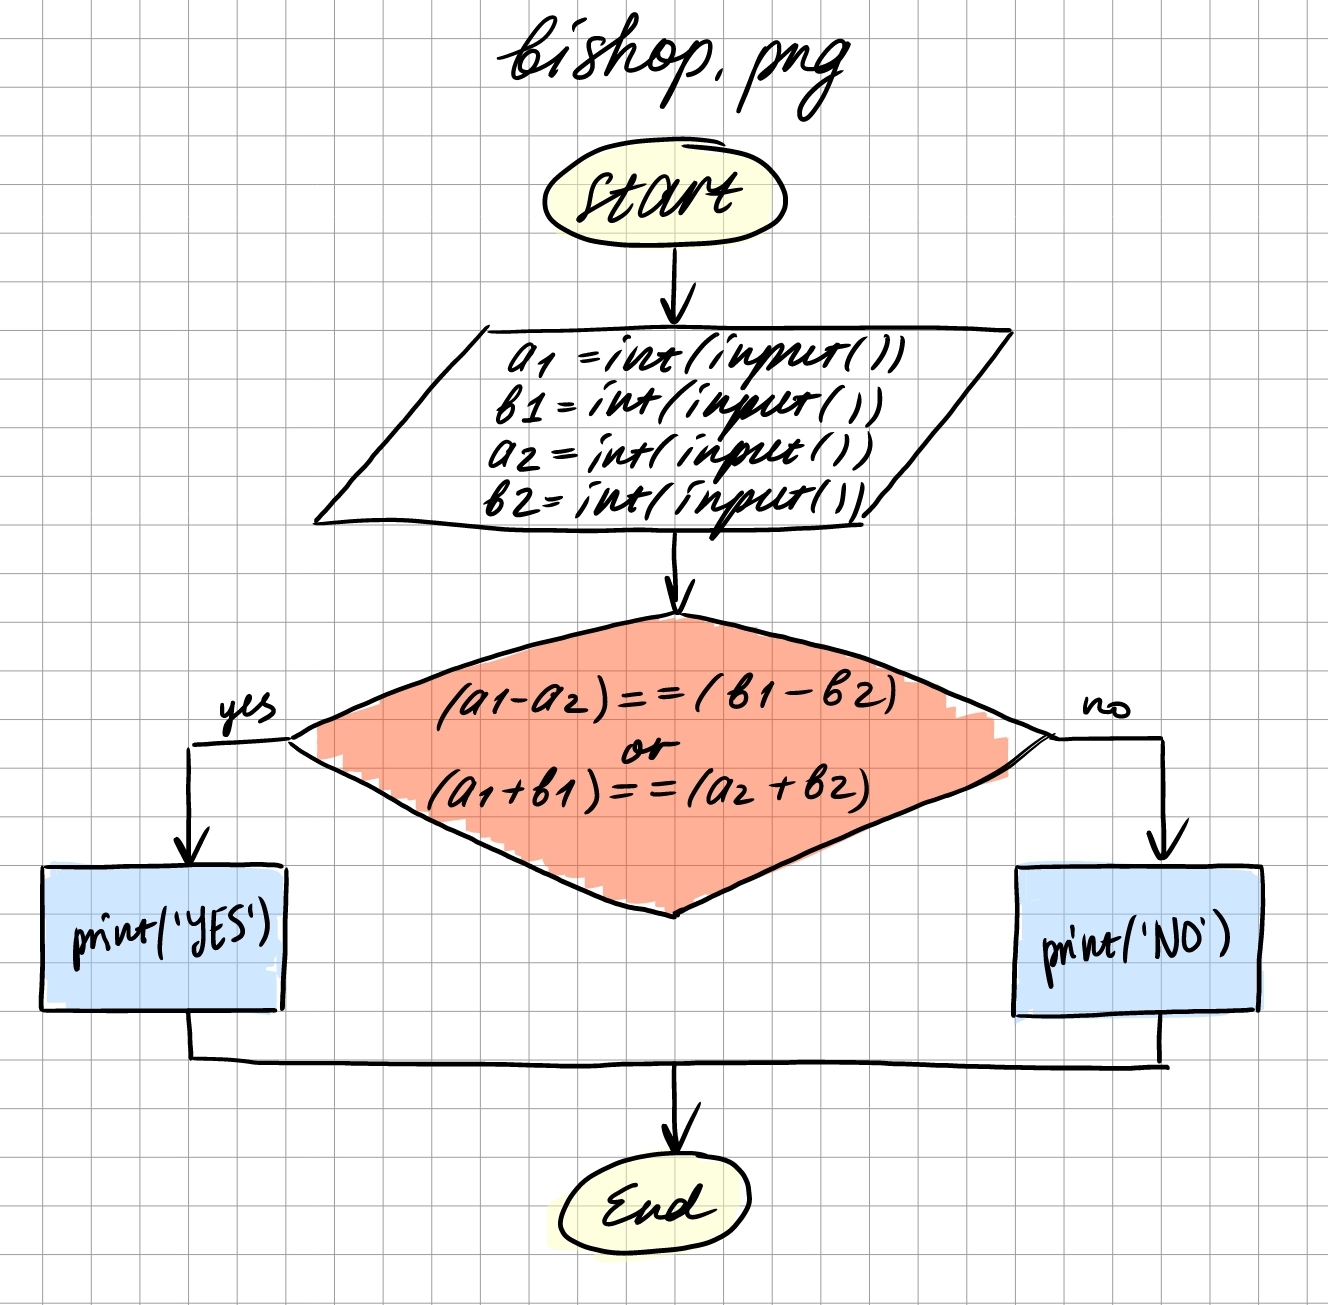 bishop.png
start
a1 = int(input())
b1 = int(input())
a2 = int(input())
b2 = int(input())
(a1-a2) == (b1-b2)
or
(a1+b1) == (a2+b2)
yes
no
print('YES')
print('NO')
End